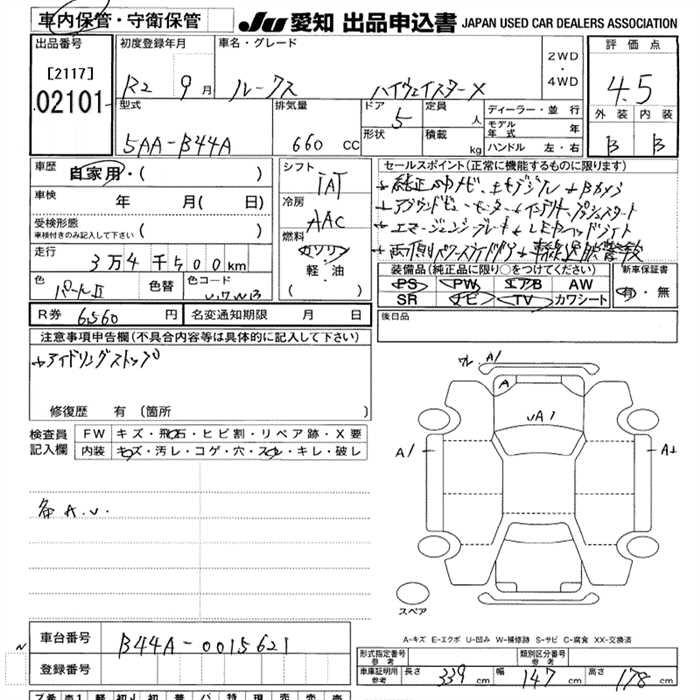 車内保管・守衛保管
JU 愛知 出品申込書 JAPAN USED CAR DEALERS ASSOCIATION
出品番号
[2117]
02101
初度登録年月
R2 9月
車名・グレード
ルークス ハイウェイスターX
2WD
・
4WD
評価点
4.5
外装 内装
B B
型式
5AA-B44A
排気量
660 cc
ドア
5
形状
定員
人
積載
kg
ディーラー・並行
モデル年式 年
ハンドル 左・右
車歴
自家用・( )
車検
年 月( 日)
受検形態
車検付きのみ記入して下さい ( )
走行
3万4千500km
色
パールII
色替
色コード
シフト
IAT
冷房
AAC
燃料
ガソリン
・
軽・油
( )
セールスポイント(正常に機能するものに限ります)
装備品(純正品に限り○をつけてください)
PS PW エアB AW
SR ナビ TV カワシート
新車保証書
有・無
後日品
R券 6560 円
名変通知期限 月 日
注意事項申告欄(不具合内容等は具体的に記入して下さい)
アイドリングストップ
修復歴 有(箇所 )
検査員記入欄
FW キズ・飛石・ヒビ割・リペア跡・X要
内装 キズ・汚レ・コゲ・穴・スレ・キレ・破レ
各A.U.
A1
A
UA1
A1
A1
スペア
A-キズ E-エクボ U-凹み W-補修跡 S-サビ C-腐食 XX-交換済
車台番号 B44A-0015621
登録番号
形式指定番号
参考
類別区分番号
参考
車庫証明用
参考
長さ 339 cm 幅 147 cm 高さ 178 cm